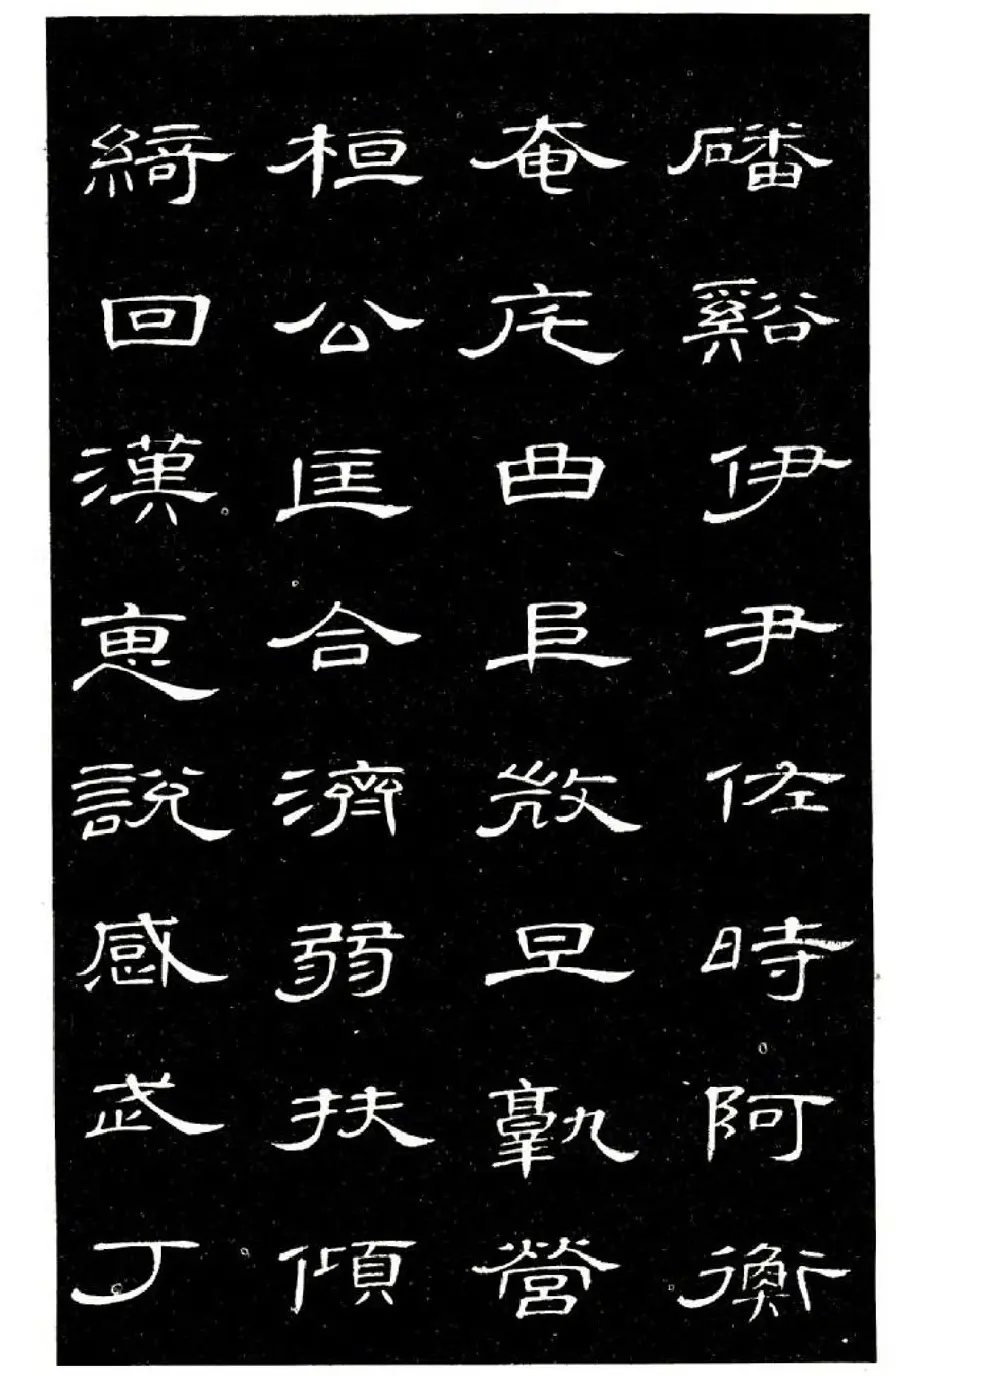 磻谿伊尹佐時阿衡
奄宅曲阜微旦孰營
桓公匡合濟弱扶傾
綺回漢惠說感武丁